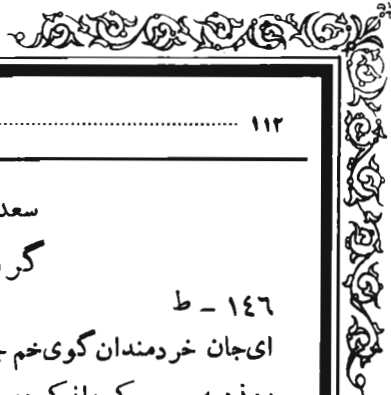 ١١٢
سعد
گر
١٤٦ - ط
ای‌جان خردمندان گوی‌خم